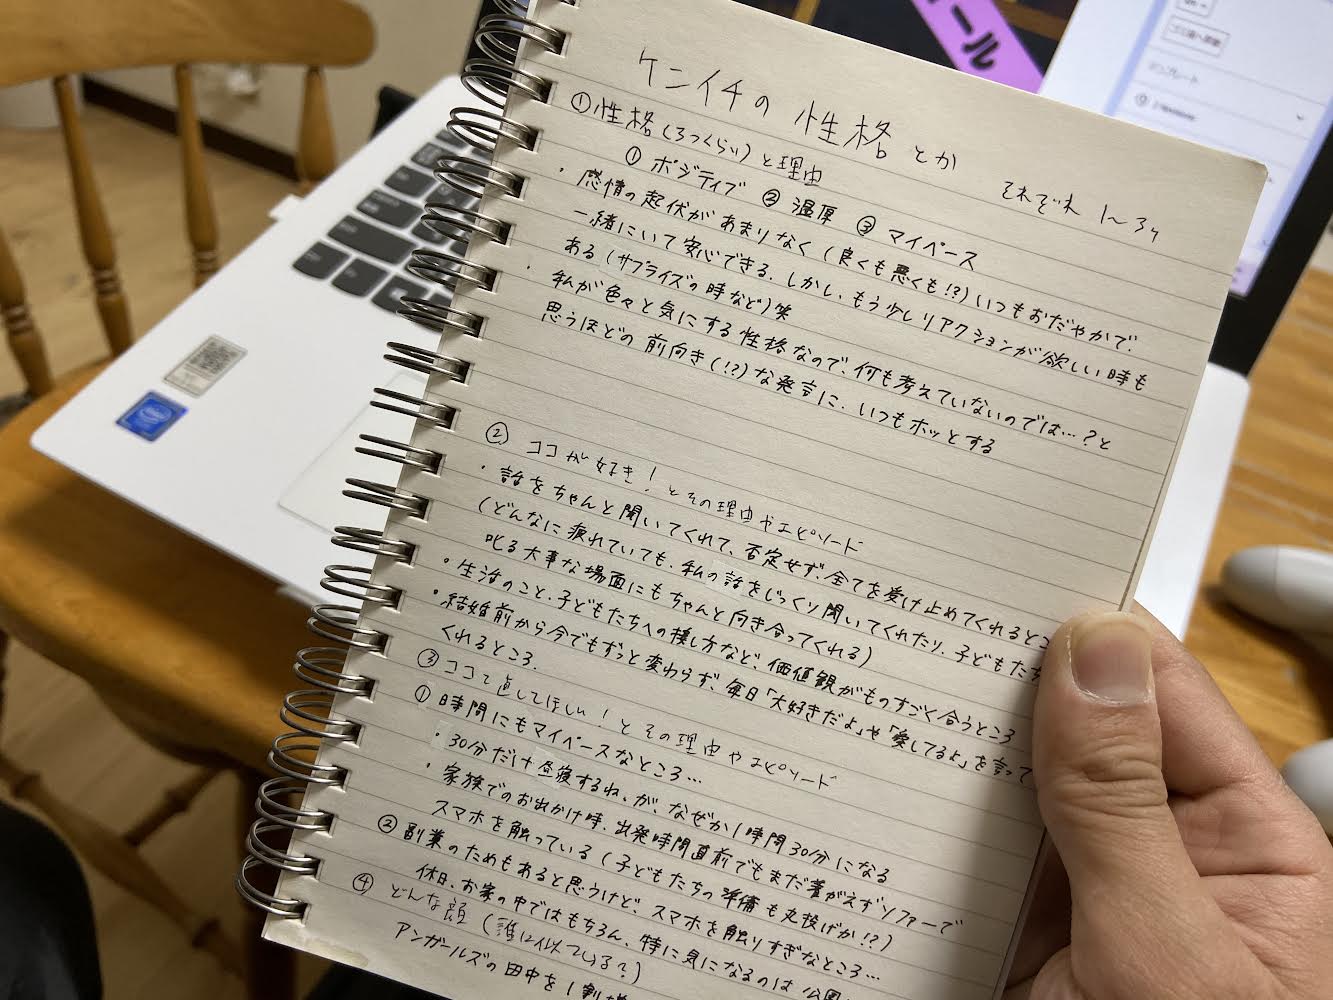 ケンイチの性格とか
それぞれ 1〜3ヶ
①性格(3つくらい)と理由
① ポジティブ ② 温厚 ③ マイペース
・感情の起伏があまりなく(良くも悪くも!?)いつもおだやかで、
一緒にいて安心できる。しかし、もう少しリアクションが欲しい時も
ある(サプライズの時など)笑
・私が色々と気にする性格なので、何も考えていないのでは…?と
思うほどの前向き(!?)な発言に、いつもホッとする
② ココが好き!とその理由やエピソード
・話をちゃんと聞いてくれて、否定せず、全てを受け止めてくれるとこ
(どんなに疲れていても、私の話をじっくり聞いてくれたり、子どもたち
叱る大事な場面にもちゃんと向き合ってくれる)
・生活のこと、子どもたちへの接し方など、価値観がものすごく合うところ
・結婚前から今でもずっと変わらず、毎日「大好きだよ」や「愛してるよ」を言って
くれるところ。
③ココて直してほしい!とその理由やエピソード
① 時間にもマイペースなところ…
・30分だけ昼寝するね。が、なぜか1時間30分になる
・家族でのお出かけ時、出発時間直前でもまだ着がえずソファーで
スマホを触っている(子どもたちの準備も丸投げか!?)
② 副業のためもあると思うけど、スマホを触りすぎなところ…
休日、お家の中ではもちろん、特に気になるのは公園
④ どんな顔(誰に似ている?)
アンガールズの田中を1割
ール
intel